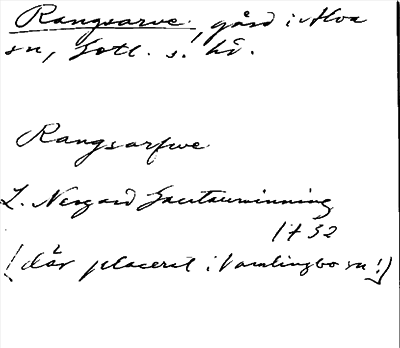 Rangsarve, gård i Alva
sn, Gotl. s. hd.
Rangsarfwe
L. Nergård Gautauminning
1732
(där placerat i Vamlingbo sn!)